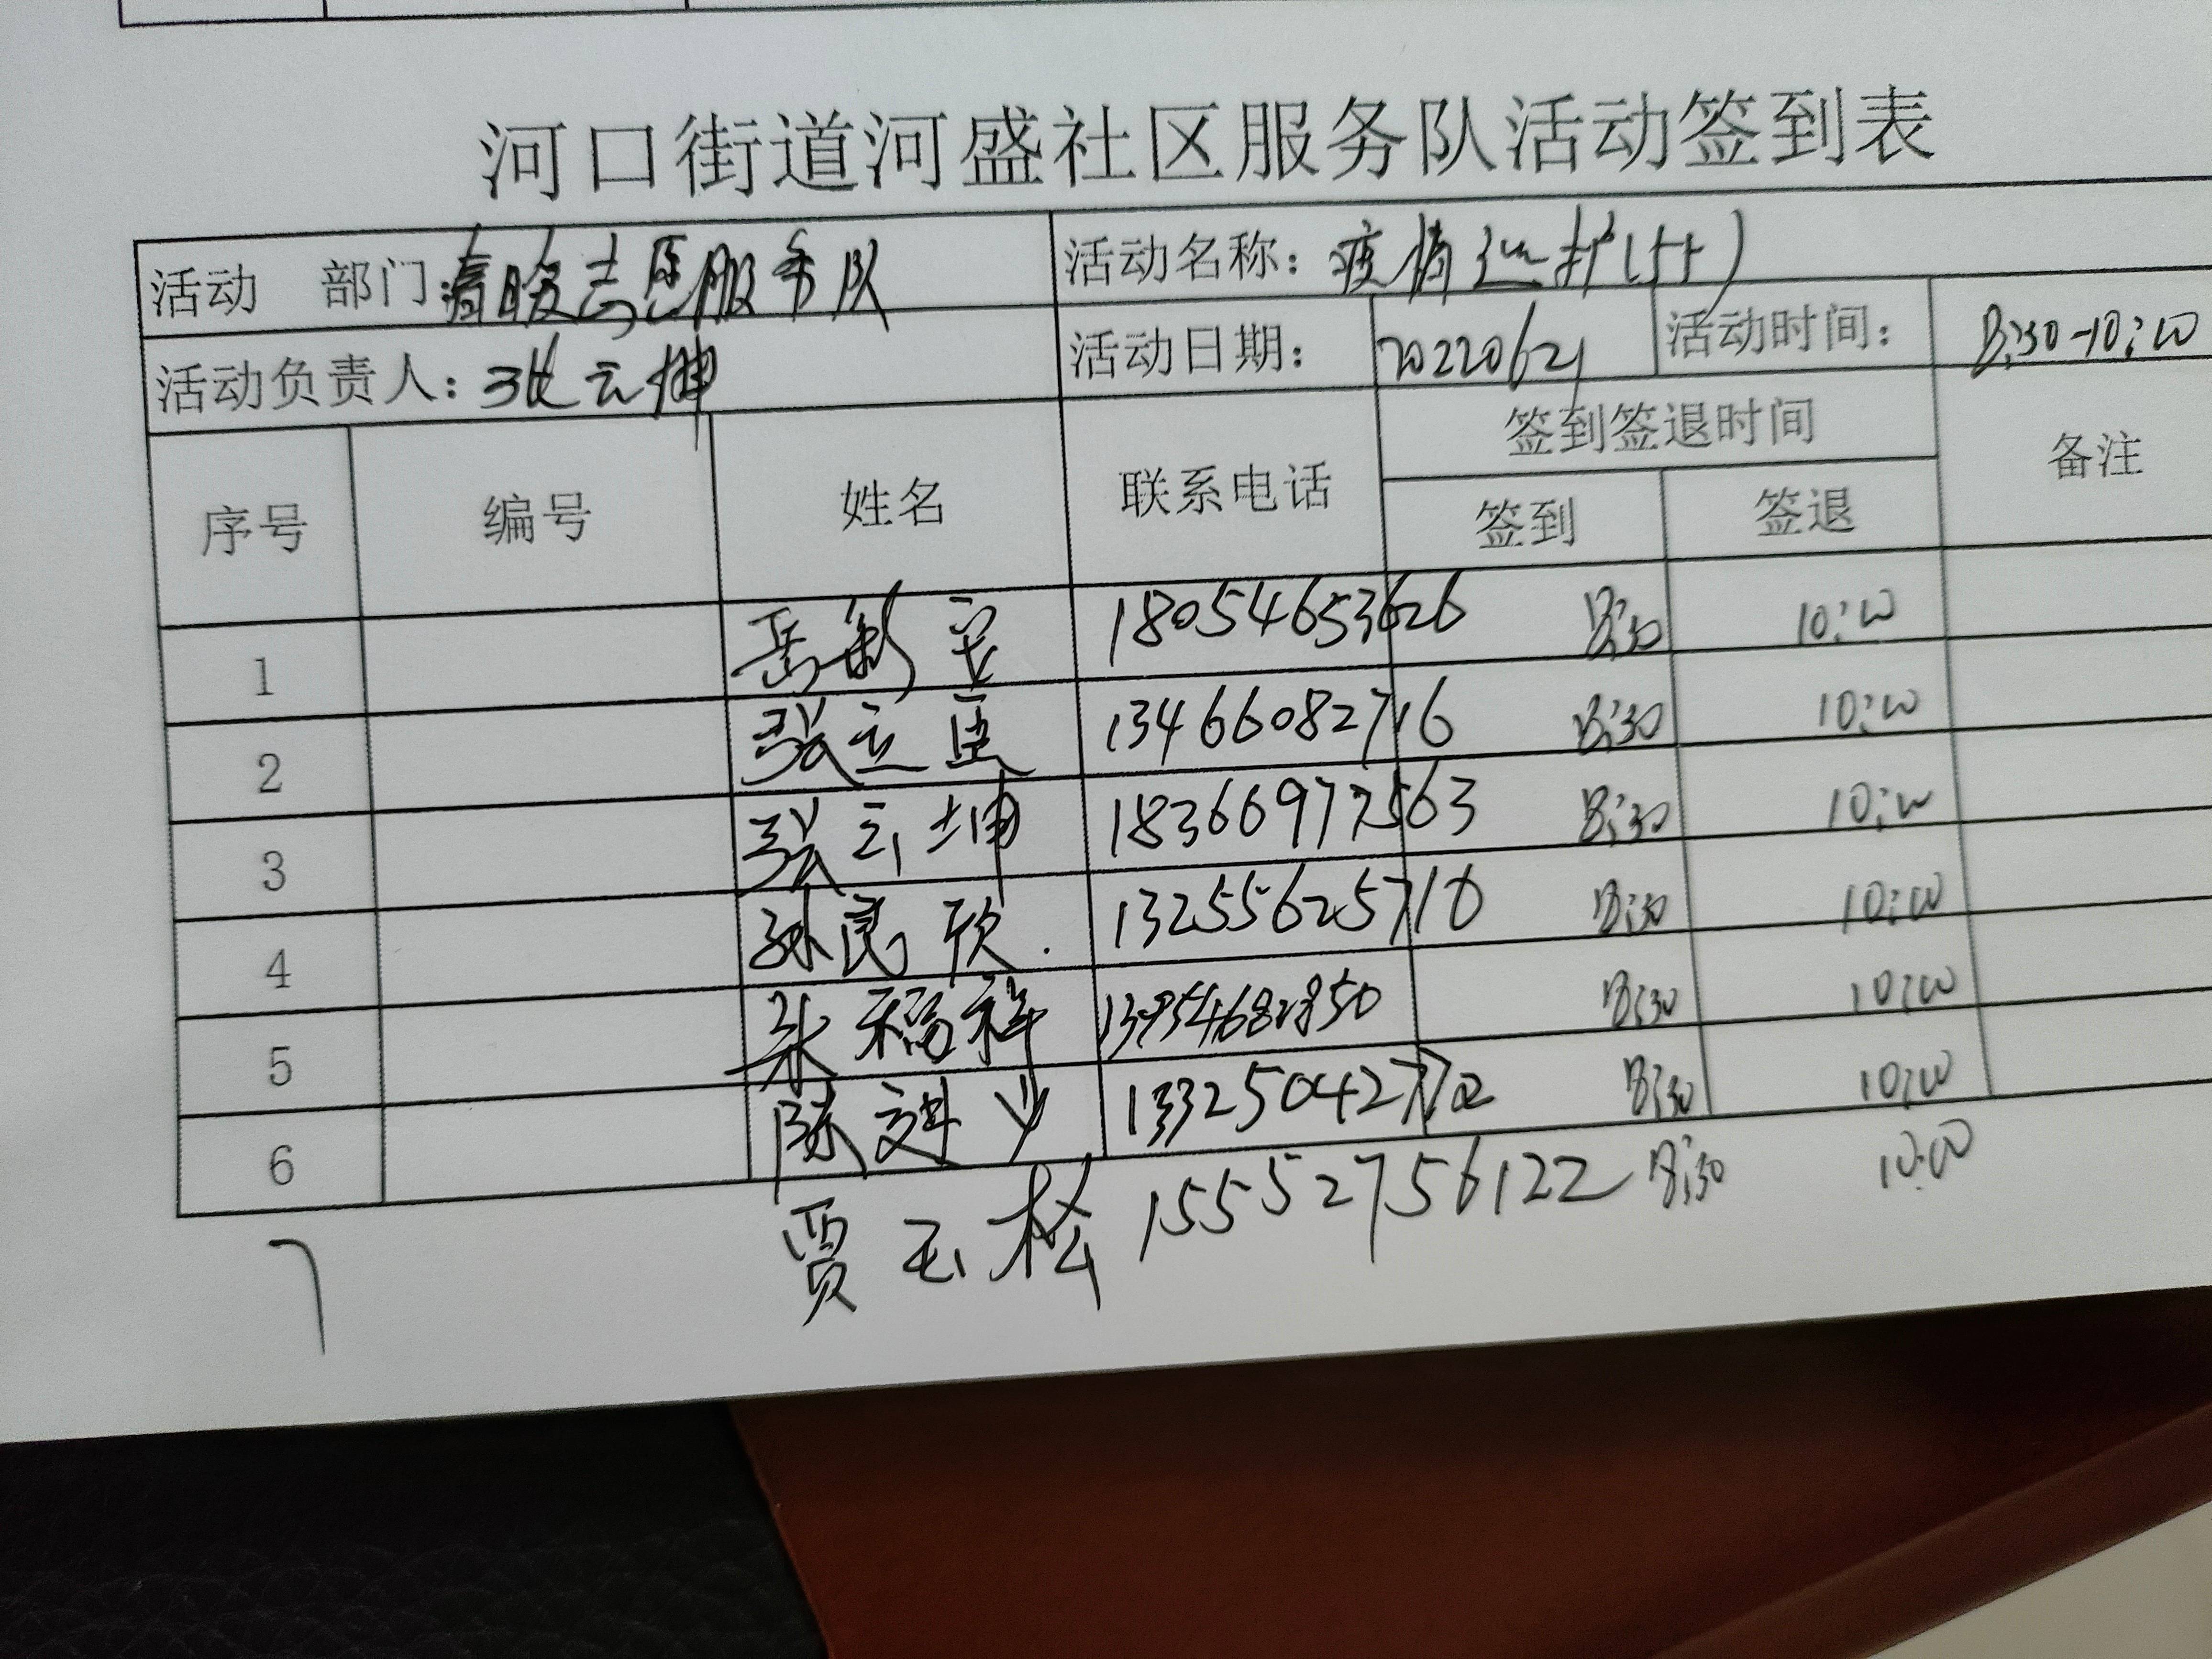 河口街道河盛社区服务队活动签到表
活动 部门:春暖志愿服务队 活动名称: 疫情
活动负责人: 张云坤 活动日期: 20220621 活动时间: 8:30-10:00
序号 编号 姓名 联系电话 签到签退时间 备注
签到 签退
1 岳 18054653626 8:30 10:00
2 张立臣 13466082716 8:30 10:00
3 张云坤 18366977563 8:30 10:00
4 孙良欣 13255625718 8:30 10:00
5 福祥 13954682850 8:30 10:00
6 陈 13325042772 8:30 10:00
7 贾玉松 15552756122 8:30 10:00